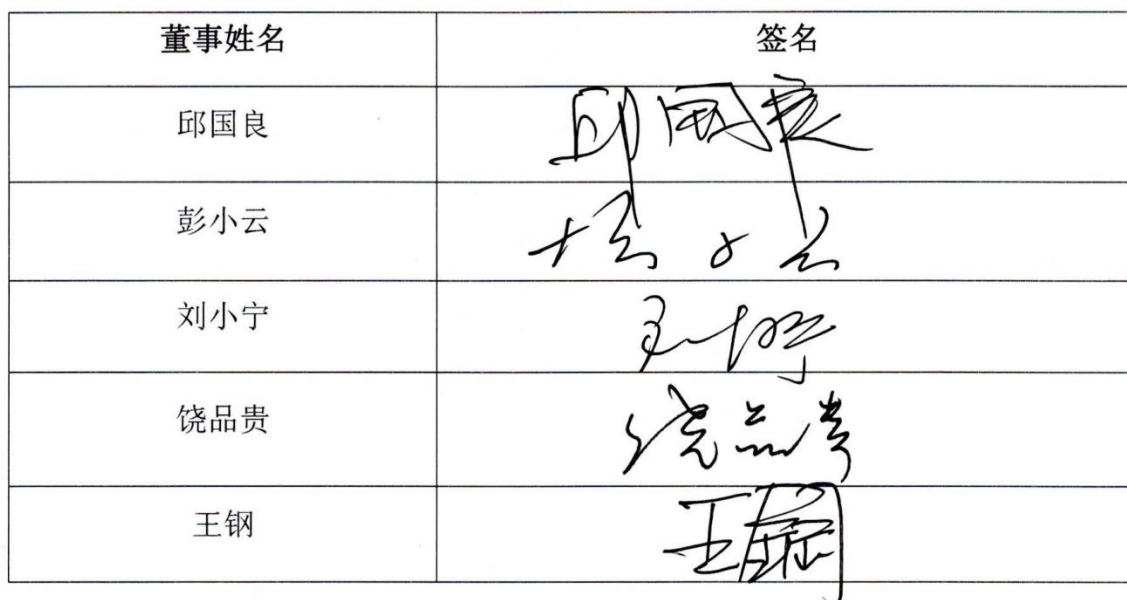 董事姓名 签名
邱国良 邱国良
彭小云 彭小云
刘小宁 刘小宁
饶品贵 饶品贵
王钢 王钢